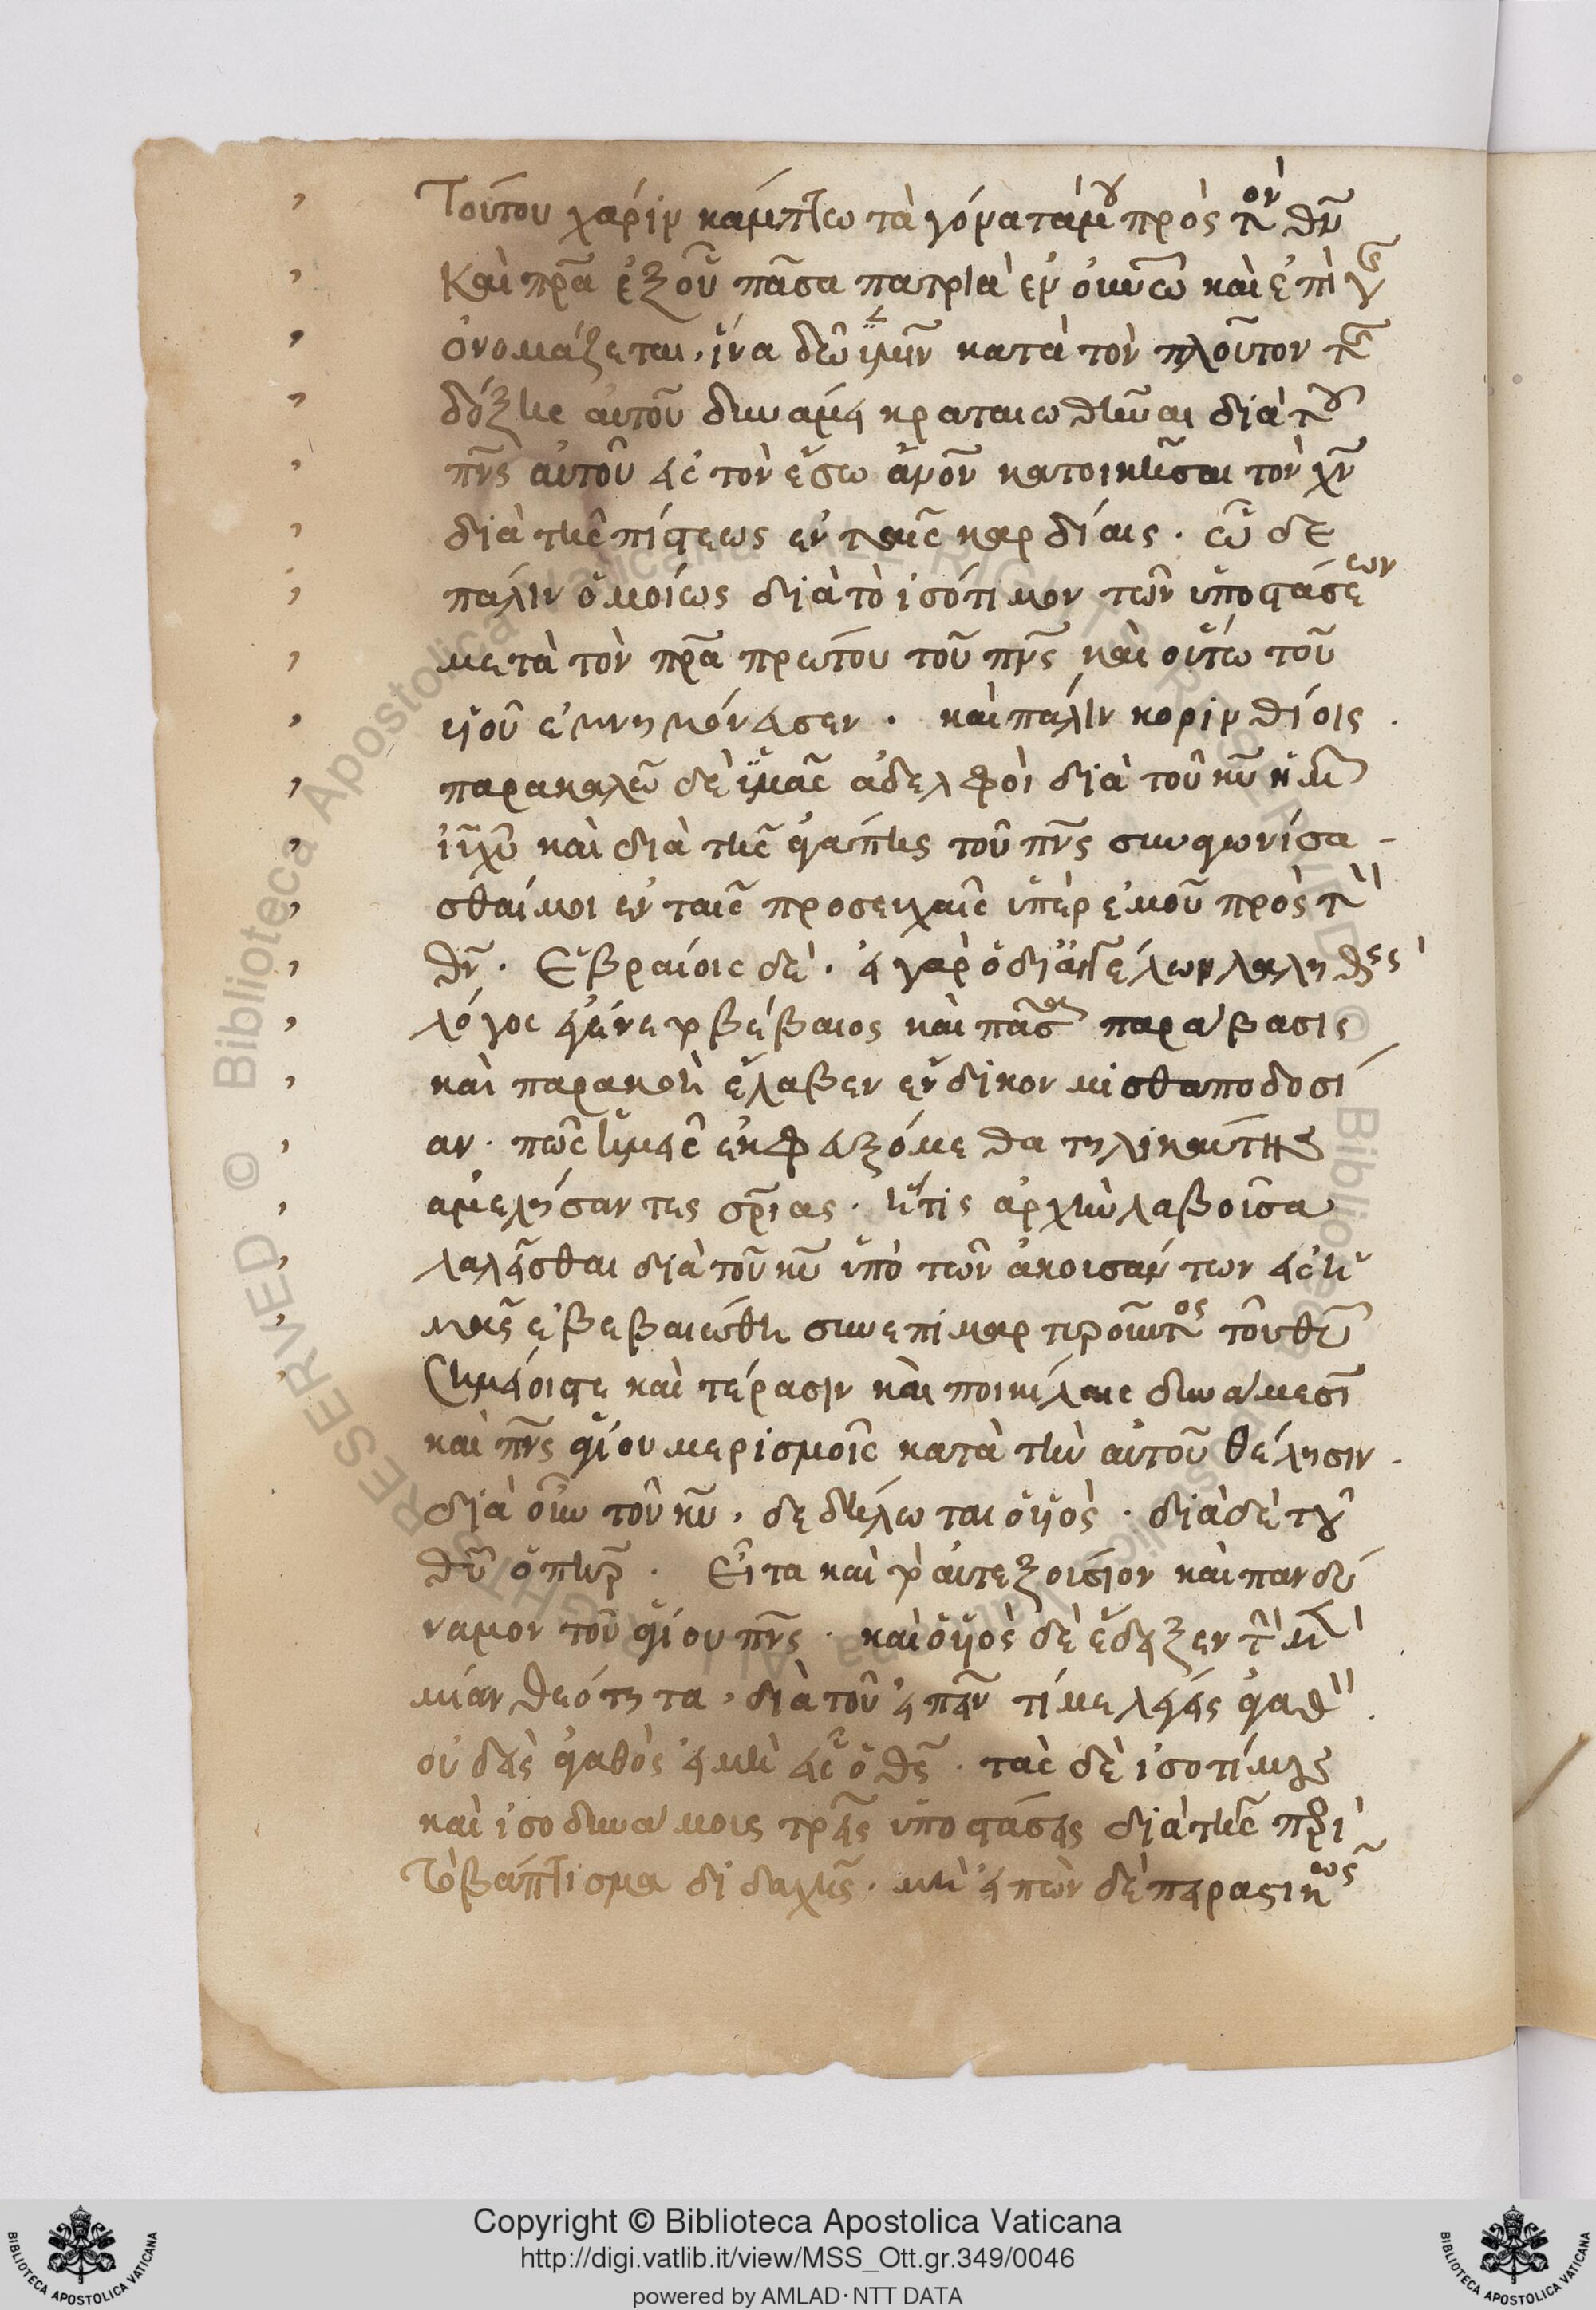 Τούτου χάριν κάμπτω τὰ γόνατά μου πρὸς τὸν θν̅
Καὶ πρ̅α ἐξ οὗ πᾶσα πατριὰ ἐν οὐνω̅ καὶ ἐπὶ γῆς
ὀνομάζεται, ἵνα δώῃ ὑμῖν κατὰ τὸν πλοῦτον τῆς
δόξης αὐτοῦ δυνάμει κραταιωθῆναι διὰ τοῦ
πν̅ς αὐτοῦ εἰς τὸν ἔσω ἄνον̅ κατοικῆσαι τὸν χν̅
διὰ τῆς πίστεως ἐν ταῖς καρδίαις . ὧδε
πάλιν ὁμοίως διὰ τὸ ἰσότιμον τῶν ὑποστάσεων
μετὰ τὸν πρ̅α πρώτου τοῦ πν̅ς καὶ οὕτω τοῦ
υἱοῦ ἐμνημόνευσεν . καὶ πάλιν κορινθίοις .
παρακαλῶ δὲ ὑμᾶς ἀδελφοὶ διὰ τοῦ κυ̅ ἡμῶν
ιυ̅ χυ̅ καὶ διὰ τῆς ἀγάπης τοῦ πν̅ς συναγωνίσα-
σθαί μοι ἐν ταῖς προσευχαῖς ὑπὲρ ἐμοῦ πρὸς τὸν
θν̅ . Ἑβραίοις δέ . εἰ γὰρ ὁ δι' ἀγγέλων λαληθεὶς
λόγος ἐγένετο βέβαιος καὶ πᾶσα παράβασις
καὶ παρακοὴ ἔλαβεν ἔνδικον μισθαποδοσί
αν . πῶς ἡμεῖς ἐκφευξόμεθα τηλικαύτης
ἀμελήσαντες σρ̅ιας . ἥτις ἀρχὴν λαβοῦσα
λαλεῖσθαι διὰ τοῦ κυ̅ ὑπὸ τῶν ἀκουσάντων εἰς ἡ
μᾶς ἐβεβαιώθη συνεπιμαρτυροῦντος τοῦ θυ̅
σημείοις τε καὶ τέρασιν καὶ ποικίλαις δυνάμεσι
καὶ πν̅ς ἁγίου μερισμοῖς κατὰ τὴν αὐτοῦ θέλησιν .
διὰ οὖν τοῦ κυ̅ , δεδήλωται ὁ υἱός . διὰ δὲ τοῦ
θυ̅ ὁ πηρ̅ . Εἶτα καὶ τὸ αὐτεξούσιον καὶ πανδύ
ναμον τοῦ ἁγίου πν̅ς . καὶ ὁ υἱὸς δὲ ἔδειξεν τὴν μὲν
μίαν θεότητα , διὰ τοῦ εἰπεῖν τί με λέγεις ἀγαθὸν .
οὐδεὶς ἀγαθὸς εἰ μὴ εἷς ὁ θς̅ . τὰς δὲ ἰσοτίμους
καὶ ἰσοδυνάμους τρεῖς ὑποστάσεις διὰ τῆς περὶ
τὸ βάπτισμα διδαχῆς . μὴ εἰπὼν δὲ